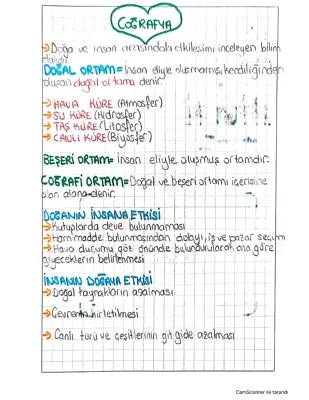 COĞRAFYA
→Doğa ve insan arasındaki etkileşimi inceleyen bilim
dalıdır.
DOĞAL ORTAM=İnsan eliyle oluşmamış, kendiliğinden
oluşan doğal ortama denir.
→HAVA KÜRE (Atmosfer)
→SU KÜRE (Hidrosfer)
→TAŞ KÜRE (Litosfer)
→CANLI KÜRE (Biyosfer)
BEŞERİ ORTAM=İnsan eliyle oluşmuş ortamdır.
COĞRAFİ ORTAM=Doğal ve beşeri ortamı içerisine
alan alana denir.
DOĞANIN İNSANA ETKİSİ
→Kutuplarda deve bulunmaması
→Ham madde bulunmasından dolayı, iş ve pazar seçimi
→Hava durumu göz önünde bulundurularak ona göre
giyeceklerin belirlenmesi
İNSANIN DOĞAYA ETKİSİ
→Doğal kaynakların azalması
→Çevrenin kirletilmesi
→Canlı türü ve çeşitlerinin git gide azalması
CamScanner ile tarandı